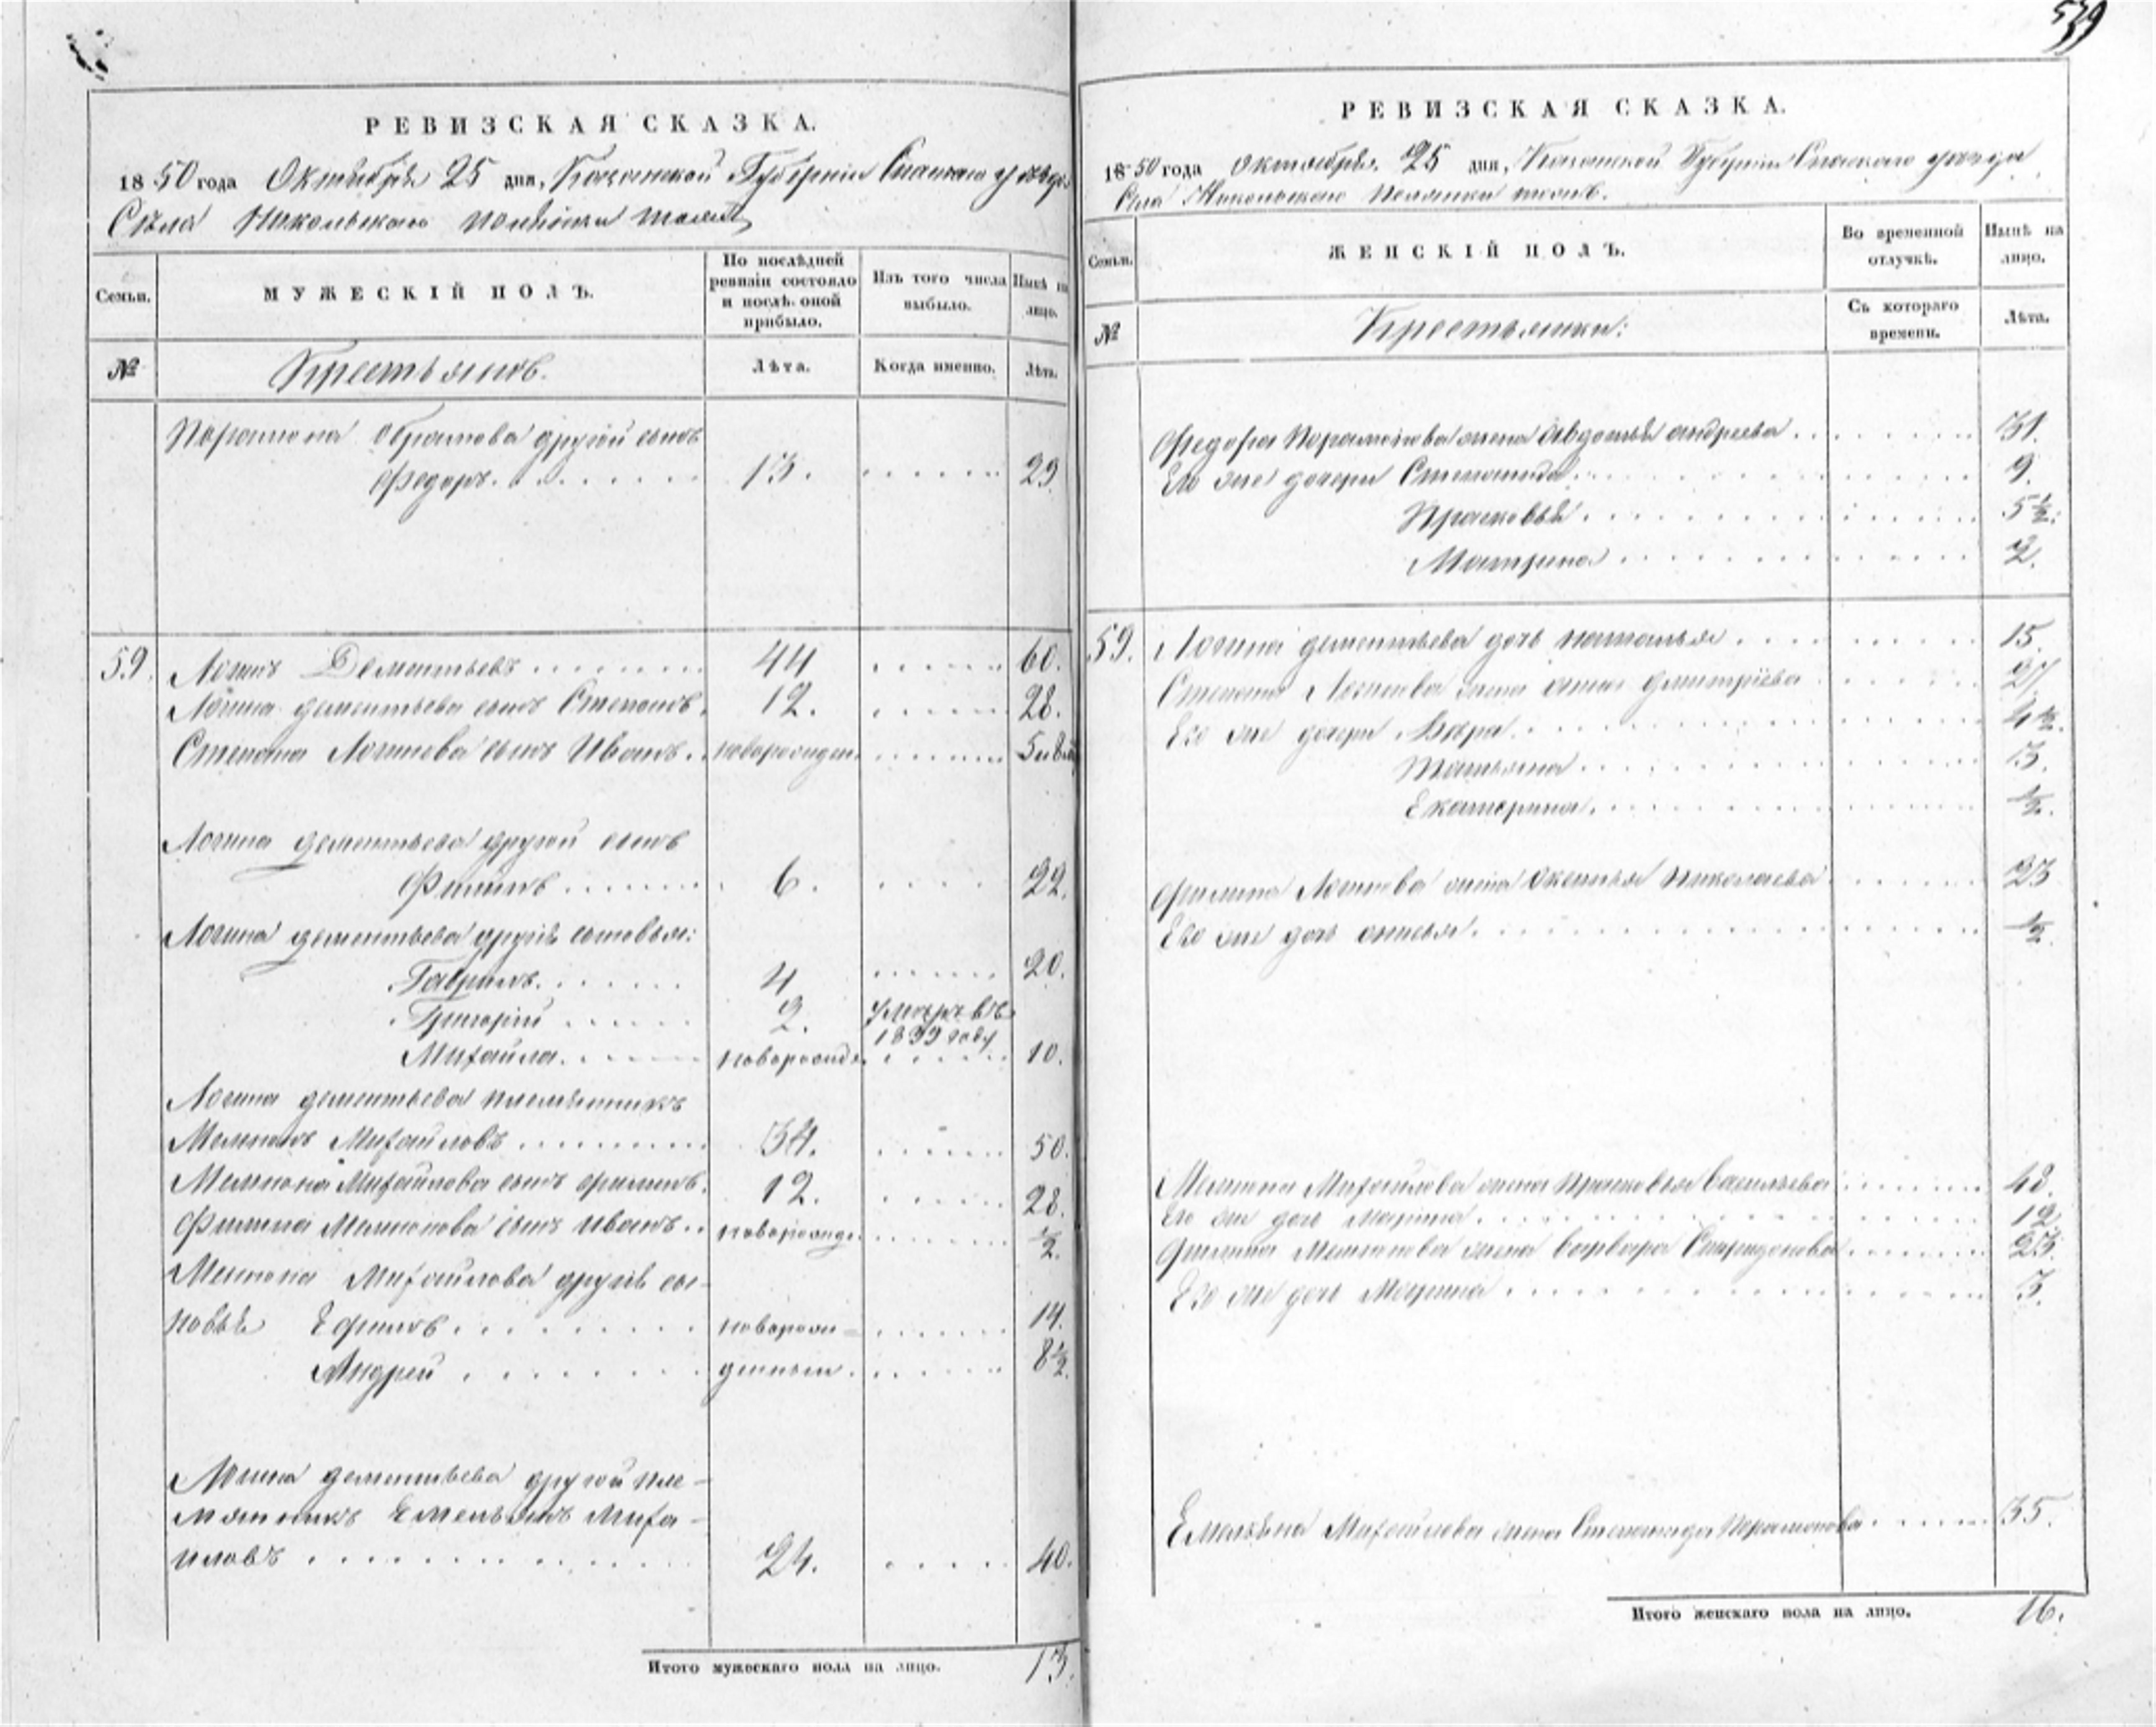 539
РЕВИЗСКАЯ СКАЗКА.
1850 года Октября 25 дня, Казанской Губернии Спаскаго уезда
Села Никольскаго тожъ
Семьи. МУЖЕСКІЙ ПОЛЪ. По послѣдней ревизіи состояло и послѣ оной прибыло. Изъ того числа выбыло. Нынѣ на лицо.
№ Крестьянъ. Лѣта. Когда именно. Лѣта.
Парамона Абрамова другой сынъ
Федоръ 13. 29
59. Логинъ Дементьевъ 44 60.
Логина дементьева сынъ Степанъ. 12. 28.
Степана Логинова сынъ Иванъ новорожден.
Логина дементьева другой сынъ
Филипъ 6. 22.
Логина дементьева другіе сыновья:
Гаврила 4 20.
Григорій 2. умеръ въ
году
Михайла новорожд. 10.
Логина дементьева племянникъ
Михайловъ 34. 50.
Михайлова сынъ филипъ. 12. 28.
Филипа сынъ иванъ новорожд. ½.
Михайлова другіе сы-
новья Ефимъ новорож- 14.
Андрей денныи 8½.
Логина дементьева другой пле-
мянникъ Емельянъ Миха-
иловъ 24. 40.
Итого мужескаго пола на лицо. 13.
РЕВИЗСКАЯ СКАЗКА.
1850 года Октября 25 дня, Казанской Губернии Спаскаго уезда
Села Никольскаго тожъ.
Семьи. ЖЕНСКІЙ ПОЛЪ. Во временной отлучкѣ. Нынѣ на лицо.
№ Крестьянки: Съ котораго времени. Лѣта.
Федора Парамонова жена Авдотья андреева 31.
Его же дочери Степанида 9.
Прасковья 5½.
Матрена 2.
59. Логина дементьева дочь наталья 15.
Степана Логинова жена анна дмитріева 27
Его же дочери Вѣра 4½.
Татьяна 3.
Екатерина ½.
Филипа Логинова жена Аксинья Николаева 23
Его же дочь анисья ½.
Михайлова жена Прасковья Васильева 48.
Его же дочь Марина 12.
филипа жена варвара Спиридонова 23.
Его же дочь Марина 3.
Емельяна Михайлова жена Степанида Парамонова 35.
Итого женскаго пола на лицо. 16.